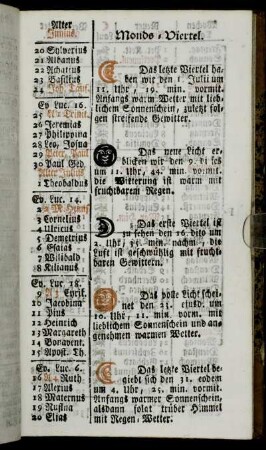 Alter
Junius.
20 Sylverius
21 Albanus
22 Achatius
23 Basilius
24 Joh. Tauf.
Ev. Luc. 16.
25
26 Jeremias
27 Philippina
28 Leo, Josua
29 Peter, Paul
30 Paul Ged.
Alter Julius
1 Theobaldus
Ev. Luc. 14.
2
3 Cornelius
4 Ulricus
5 Demetrius
6 Esaias
7 Wilibald
8 Kilianus
Ev. Luc. 18.
9 Cyrill.
10 Jacobin
11 Pius
12 Heinrich
13 Margareth
14 Bonavent.
15 Apost. Th.
Ev. Luc. 6.
16 Ruth
17 Alexius
18 Maternus
19 Rufina
20 Elias
Monds-Viertel.
Das letzte Viertel ha-
ben wir den 1. Julii um
11. Uhr, 19. min. vormit.
Anfangs warm Wetter mit lieb-
lichem Sonnenschein, zuletzt fol-
gen streifende Gewitter.
Das neue Licht er-
blicken wir den 9. dieses
um 11. Uhr, 44. min. vormit.
die Witterung ist warm mit
fruchtbarem Regen.
Das erste Viertel ist
zu sehen den 16. dito um
2. Uhr, 55. min. nachm. die
Luft ist geschwühlig mit frucht-
baren Gewittern.
Das volle Licht schei-
net den 23. ejusd. um
10. Uhr, 11. min. vorm. mit
lieblichem Sonnenschein und an-
genehmen warmen Wetter.
Das letzte Viertel be-
giebt sich den 31. eodem
um 4. Uhr, 25. min. vormit.
Anfangs warmer Sonnenschein,
alsdann folgt trüber Himmel
mit Regen-Wetter.